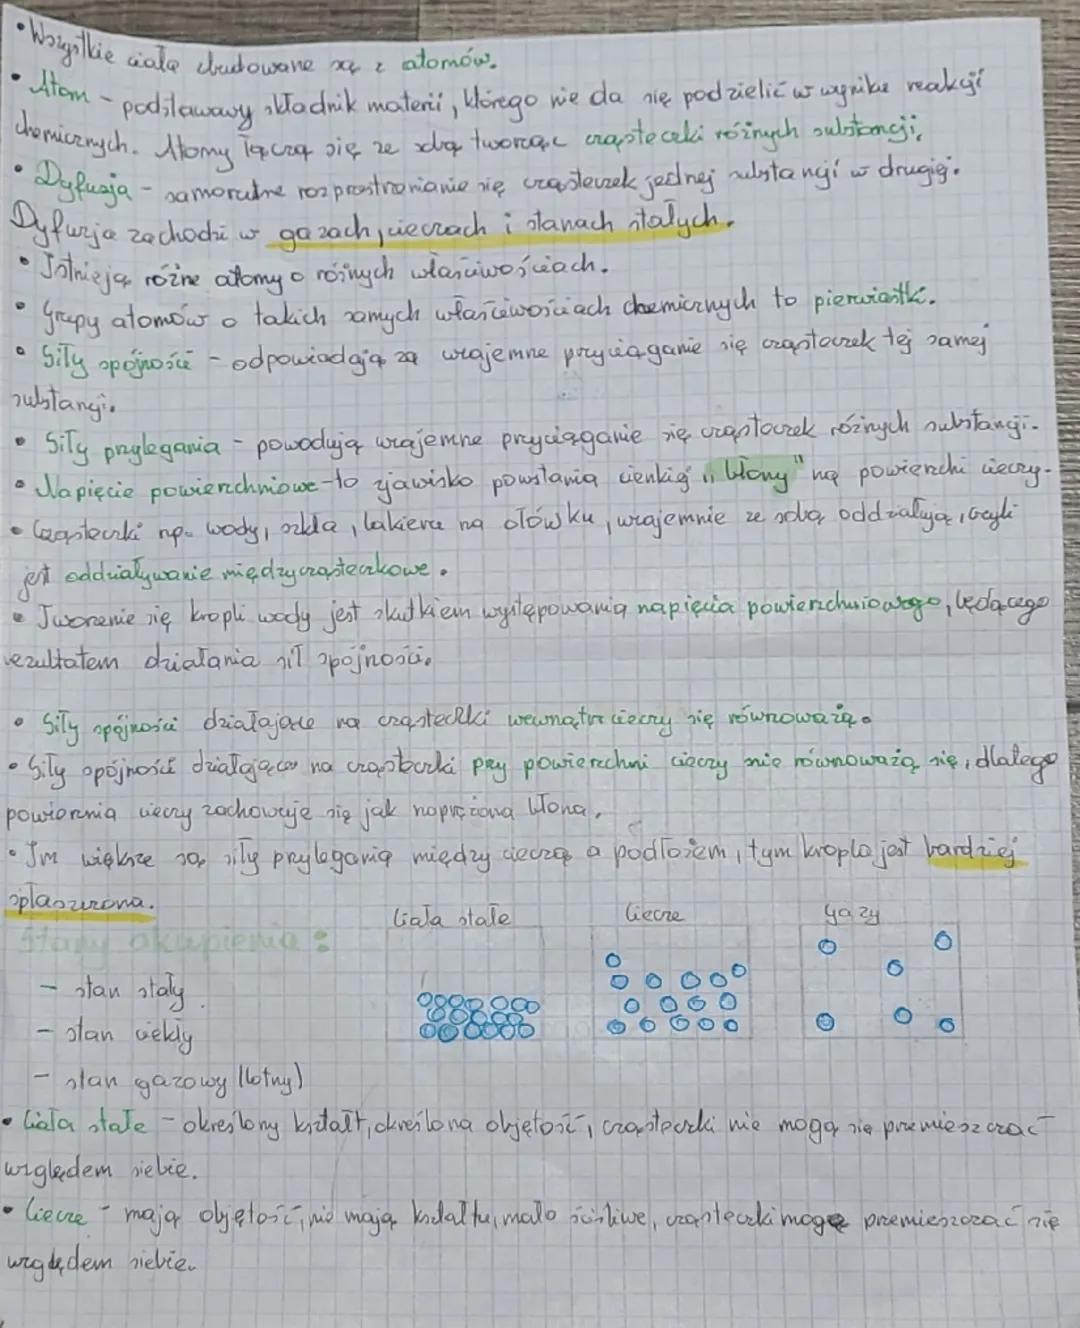 • Wszystkie ciała zbudowane są z atomów.
• Atom - podstawowy składnik materii, którego nie da się podzielić w wyniku reakcji
chemicznych. Atomy łączą się ze sobą tworząc cząsteczki różnych substancji.
• Dyfuzja - samorzutne rozprzestrzenianie się cząsteczek jednej substancji w drugiej.
Dyfuzja zachodzi w gazach, cieczach i stanach stałych.
• Istnieją różne atomy o różnych właściwościach.
• Grupy atomów o takich samych właściwościach chemicznych to pierwiastki.
• Siły spójności - odpowiadają za wzajemne przyciąganie się cząsteczek tej samej
substancji.
• Siły przylegania - powodują wzajemne przyciąganie się cząsteczek różnych substancji.
• Napięcie powierzchniowe - to zjawisko powstania cienkiej „błony" na powierzchni cieczy.
• Cząsteczki np. wody, szkła, lakieru na ołówku, wzajemnie ze sobą oddziałują, czyli
jest oddziaływanie międzycząsteczkowe.
• Tworzenie się kropli wody jest skutkiem występowania napięcia powierzchniowego, będącego
rezultatem działania sił spójności.
• Siły spójności działające na cząsteczki wewnątrz cieczy się równoważą.
• Siły spójności działające na cząsteczki przy powierzchni cieczy nie równoważą się, dlatego
powierznia cieczy zachowuje się jak napręzona błona.
• Im większe są siły przylegania między cieczą a podłożem, tym kropla jest bardziej
spłaszczona.
Ciała stałe Ciecze Gazy
Stany skupienia:
- stan stały
- stan ciekły
- stan gazowy (lotny)
• Ciała stałe - określony kształt, określona objętość, cząsteczki nie mogą się przemieszczać
względem siebie.
• Ciecze - mają objętość, nie mają kształtu, mało ściśliwe, cząsteczki mogą przemieszczać się
względem siebie.